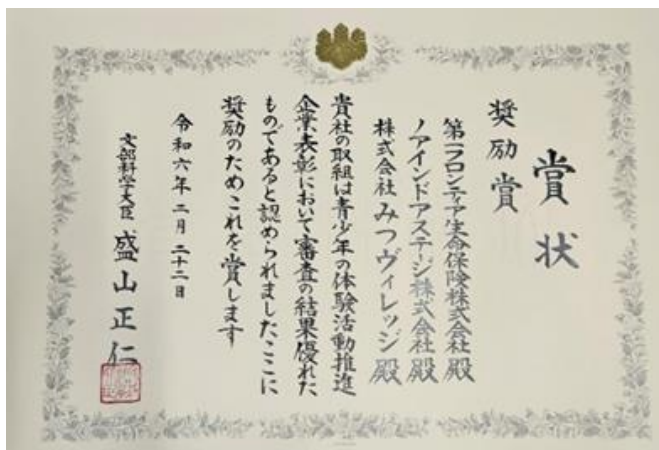 賞状
奨励賞
第一フロンティア生命保険株式会社殿
ノアインドアステージ株式会社殿
株式会社みつヴィレッジ殿
貴社の取組は青少年の体験活動推進
企業表彰において審査の結果優れた
ものであると認められましたここに
奨励のためこれを賞します
令和六年二月二十二日
文部科学大臣 盛山正仁